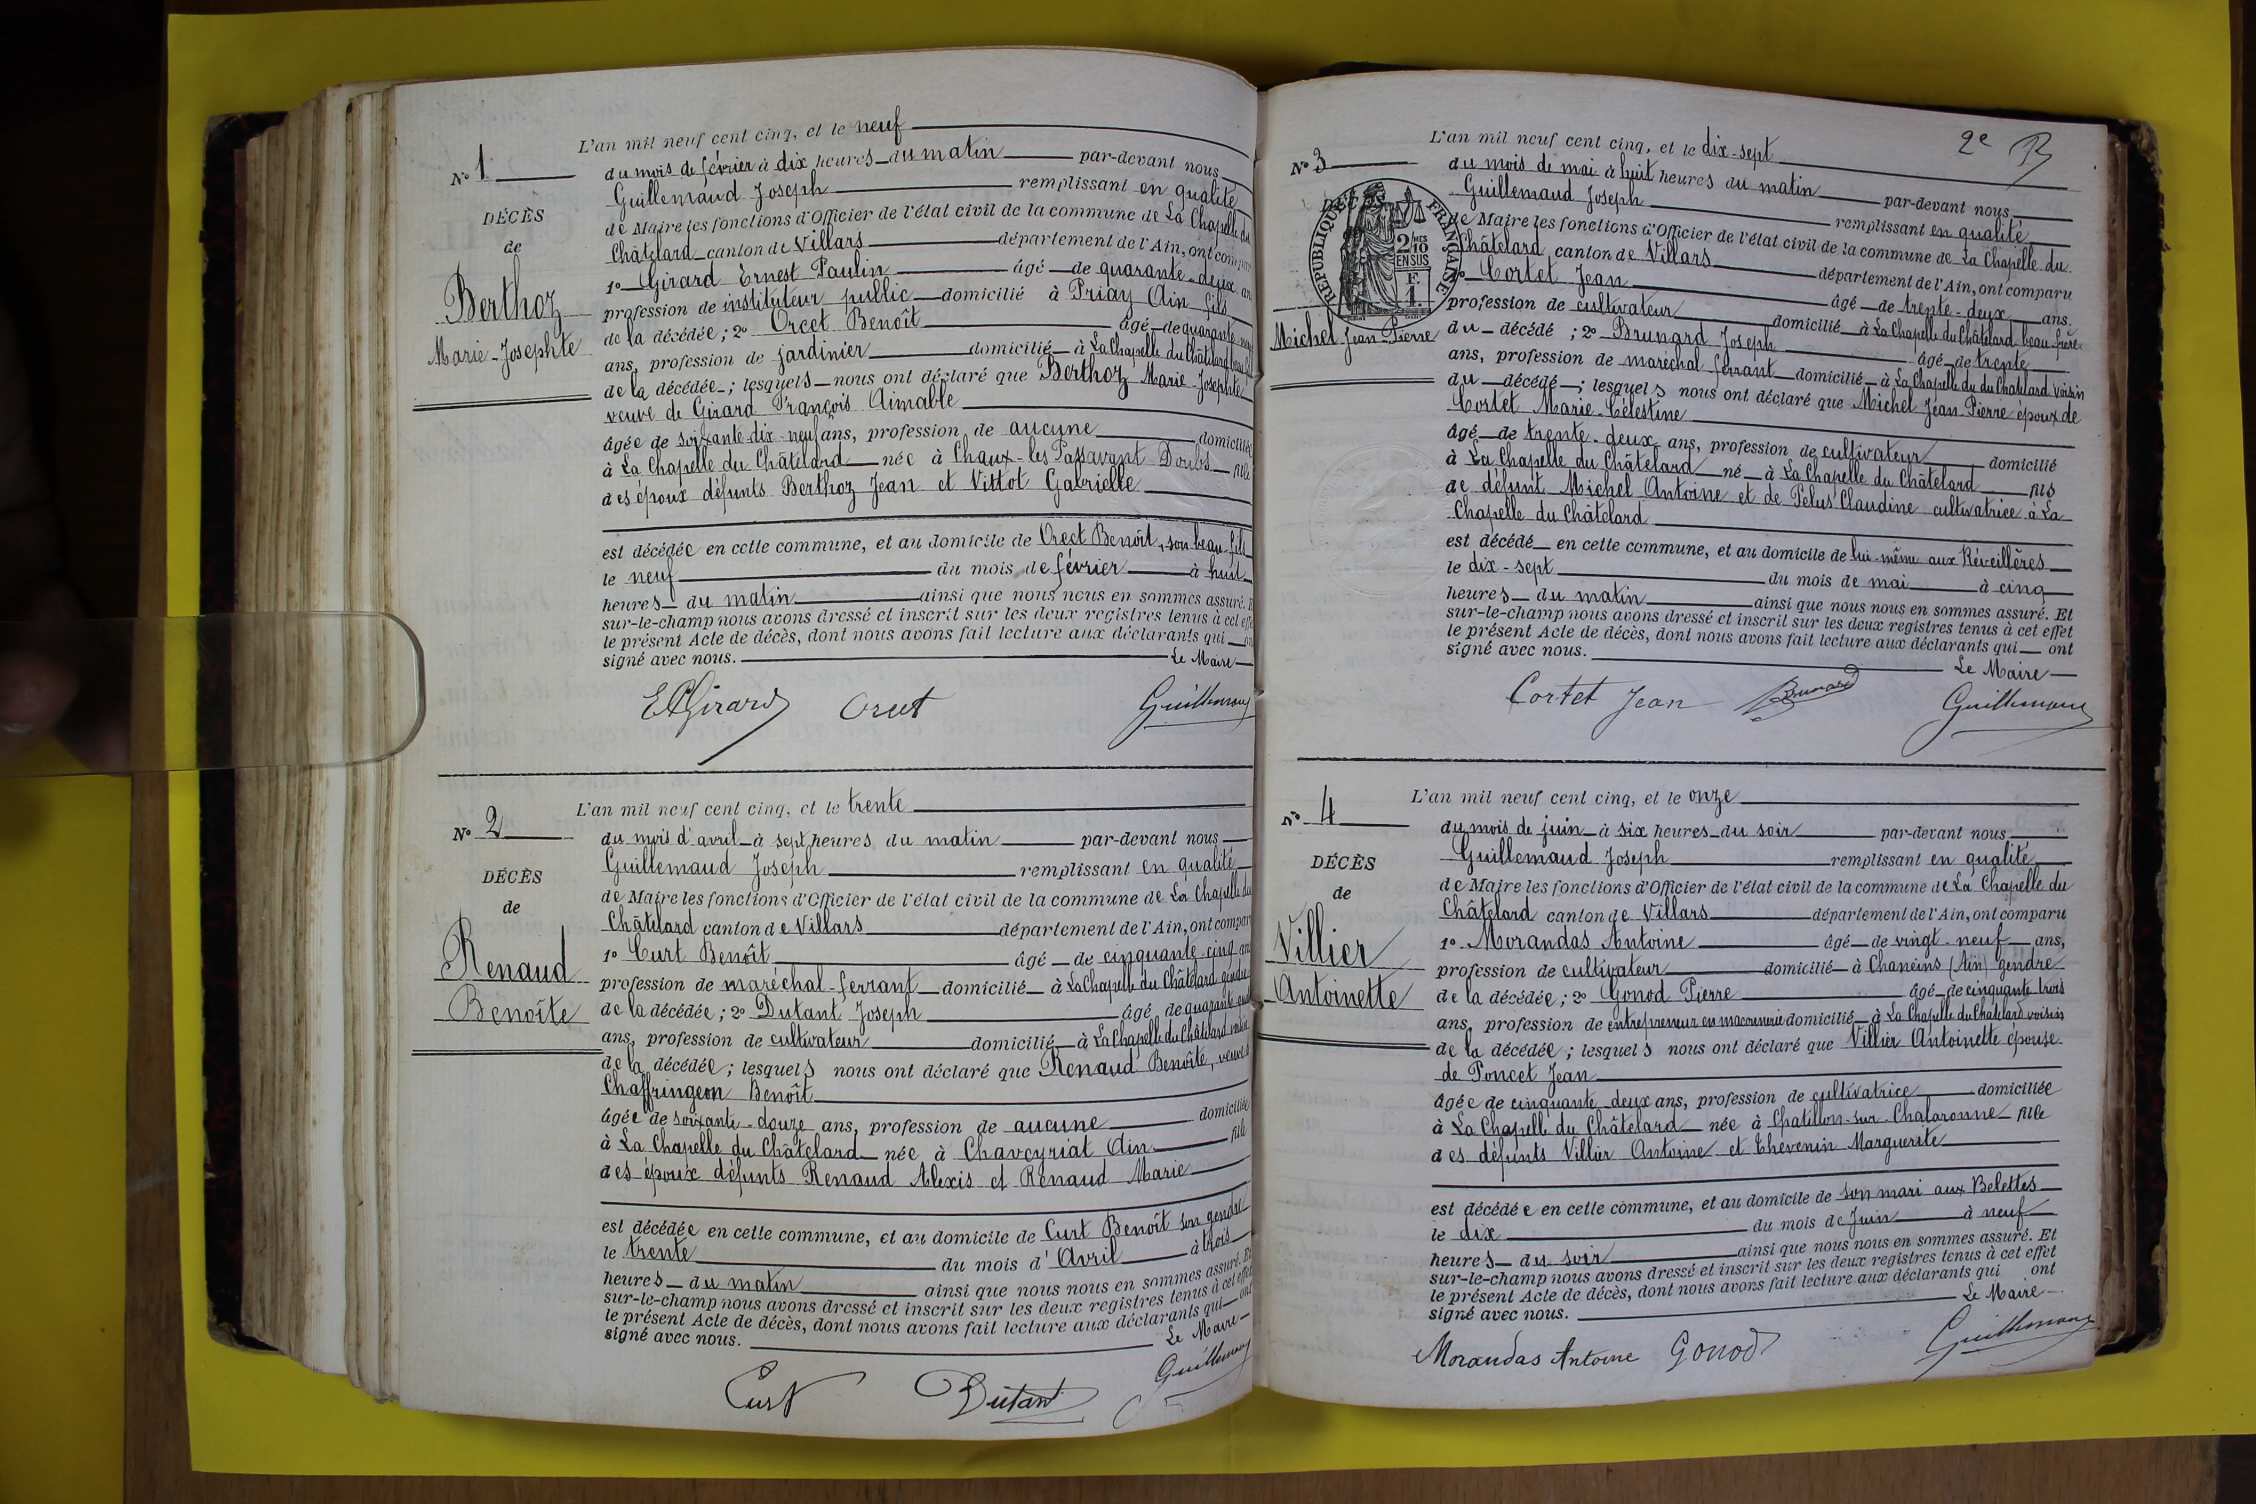 L'an mil neuf cent cinq, et le neuf
N° 1
du mois de février à dix heures du matin par-devant nous
Guillemaud Joseph remplissant en qualité
DÉCÈS
de Maire les fonctions d'Officier de l'état civil de la commune de La Chapelle du
de
Châtelard canton de Villars département de l'Ain, ont compar
Berthoz
1° Girard Ernest Paulin âgé de quarante-deux an
profession de instituteur public domicilié à Priay Ain fils
Marie-Josephte
de la décédée; 2° Orcet Benoît âgé de quarante
ans, profession de jardinier domicilié à La Chapelle du Châtelard beau fils
de la décédée; lesquels nous ont déclaré que Berthoz Marie-Josephte
veuve de Girard François Aimable
âgée de soixante-dix-neuf ans, profession de aucune domiciliée
à La Chapelle du Châtelard née à Chaux-les Passavant Doubs fille
des époux défunts Berthoz Jean et Vittot Gabrielle
est décédée en cette commune, et au domicile de Orcet Benoît, son beau-fils
le neuf du mois de février à huit
heures du matin ainsi que nous nous en sommes assuré. E
sur-le-champ nous avons dressé et inscrit sur les deux registres tenus à cet effe
le présent Acte de décès, dont nous avons fait lecture aux déclarants qui on
signé avec nous. Le Maire
E Girard Orcet Guillemaud
L'an mil neuf cent cinq, et le trente
N° 2
du mois d'avril à sept heures du matin par-devant nous
Guillemaud Joseph remplissant en qualité
DÉCÈS
de Maire les fonctions d'Officier de l'état civil de la commune de La Chapelle du
de
Châtelard canton de Villars département de l'Ain, ont compar
Renaud
1° Curt Benoît âgé de cinquante-cinq an
profession de maréchal-ferrant domicilié à La Chapelle du Châtelard gendre
Benoîte
de la décédée; 2° Dutant Joseph âgé de quarante
ans, profession de cultivateur domicilié à La Chapelle du Châtelard voisin
de la décédée; lesquels nous ont déclaré que Renaud Benoîte, veuve
Chaffringeon Benoît
âgée de soixante-douze ans, profession de aucune domiciliée
à La Chapelle du Châtelard née à Chaveyriat Ain fille
des époux défunts Renaud Alexis et Renaud Marie
est décédée en cette commune, et au domicile de Curt Benoît son gendre
le trente du mois d'Avril à trois
heures du matin ainsi que nous nous en sommes assuré. Et
sur-le-champ nous avons dressé et inscrit sur les deux registres tenus à cet effet
le présent Acte de décès, dont nous avons fait lecture aux déclarants qui ont
signé avec nous. Le Maire
Curt Dutant Guillemaud
2e
L'an mil neuf cent cinq, et le dix-sept
N° 3
du mois de mai à huit heures du matin par-devant nous
Guillemaud Joseph remplissant en qualité
DÉCÈS
RÉPUBLIQUE FRANÇAISE
2/10
EN SUS
F.
1.
de Maire les fonctions d'Officier de l'état civil de la commune de La Chapelle du
Châtelard canton de Villars département de l'Ain, ont comparu
1° Cortet Jean âgé de trente-deux ans,
profession de cultivateur domicilié à La Chapelle du Châtelard beau-frère
Michel Jean-Pierre
du décédé; 2° Brunard Joseph âgé de trente
ans, profession de maréchal ferrant domicilié à La Chapelle du du Châtelard voisin
du décédé; lesquels nous ont déclaré que Michel Jean-Pierre époux de
Cortet Marie-Célestine
âgé de trente-deux ans, profession de cultivateur domicilié
à La Chapelle du Châtelard né à La Chapelle du Châtelard fils
de défunt Michel Antoine et de Pelus Claudine cultivatrice à La
Chapelle du Châtelard
est décédé en cette commune, et au domicile de lui-même aux Réveillères
le dix-sept du mois de mai à cinq
heures du matin ainsi que nous nous en sommes assuré. Et
sur-le-champ nous avons dressé et inscrit sur les deux registres tenus à cet effet
le présent Acte de décès, dont nous avons fait lecture aux déclarants qui ont
signé avec nous. Le Maire
Cortet Jean Brunard Guillemaud
L'an mil neuf cent cinq, et le onze
N° 4
du mois de juin à six heures du soir par-devant nous
Guillemaud Joseph remplissant en qualité
DÉCÈS
de Maire les fonctions d'Officier de l'état civil de la commune de La Chapelle du
de
Châtelard canton de Villars département de l'Ain, ont comparu
Villier
1° Morandas Antoine âgé de vingt-neuf ans,
profession de cultivateur domicilié à Chaneins (Ain) gendre
Antoinette
de la décédée; 2° Gonod Pierre âgé de cinquante trois
ans, profession de entrepreneur en maçonnerie domicilié à La Chapelle du Châtelard voisin
de la décédée; lesquels nous ont déclaré que Villier Antoinette épouse
de Poncet Jean
âgée de cinquante-deux ans, profession de cultivatrice domiciliée
à La Chapelle du Châtelard née à Chatillon-sur-Chalaronne fille
des défunts Villier Antoine et Thevenin Marguerite
est décédée en cette commune, et au domicile de son mari aux Belettes
le dix du mois de Juin à neuf
heures du soir ainsi que nous nous en sommes assuré. Et
sur-le-champ nous avons dressé et inscrit sur les deux registres tenus à cet effet
le présent Acte de décès, dont nous avons fait lecture aux déclarants qui ont
signé avec nous. Le Maire
Morandas Antoine Gonod Guillemaud